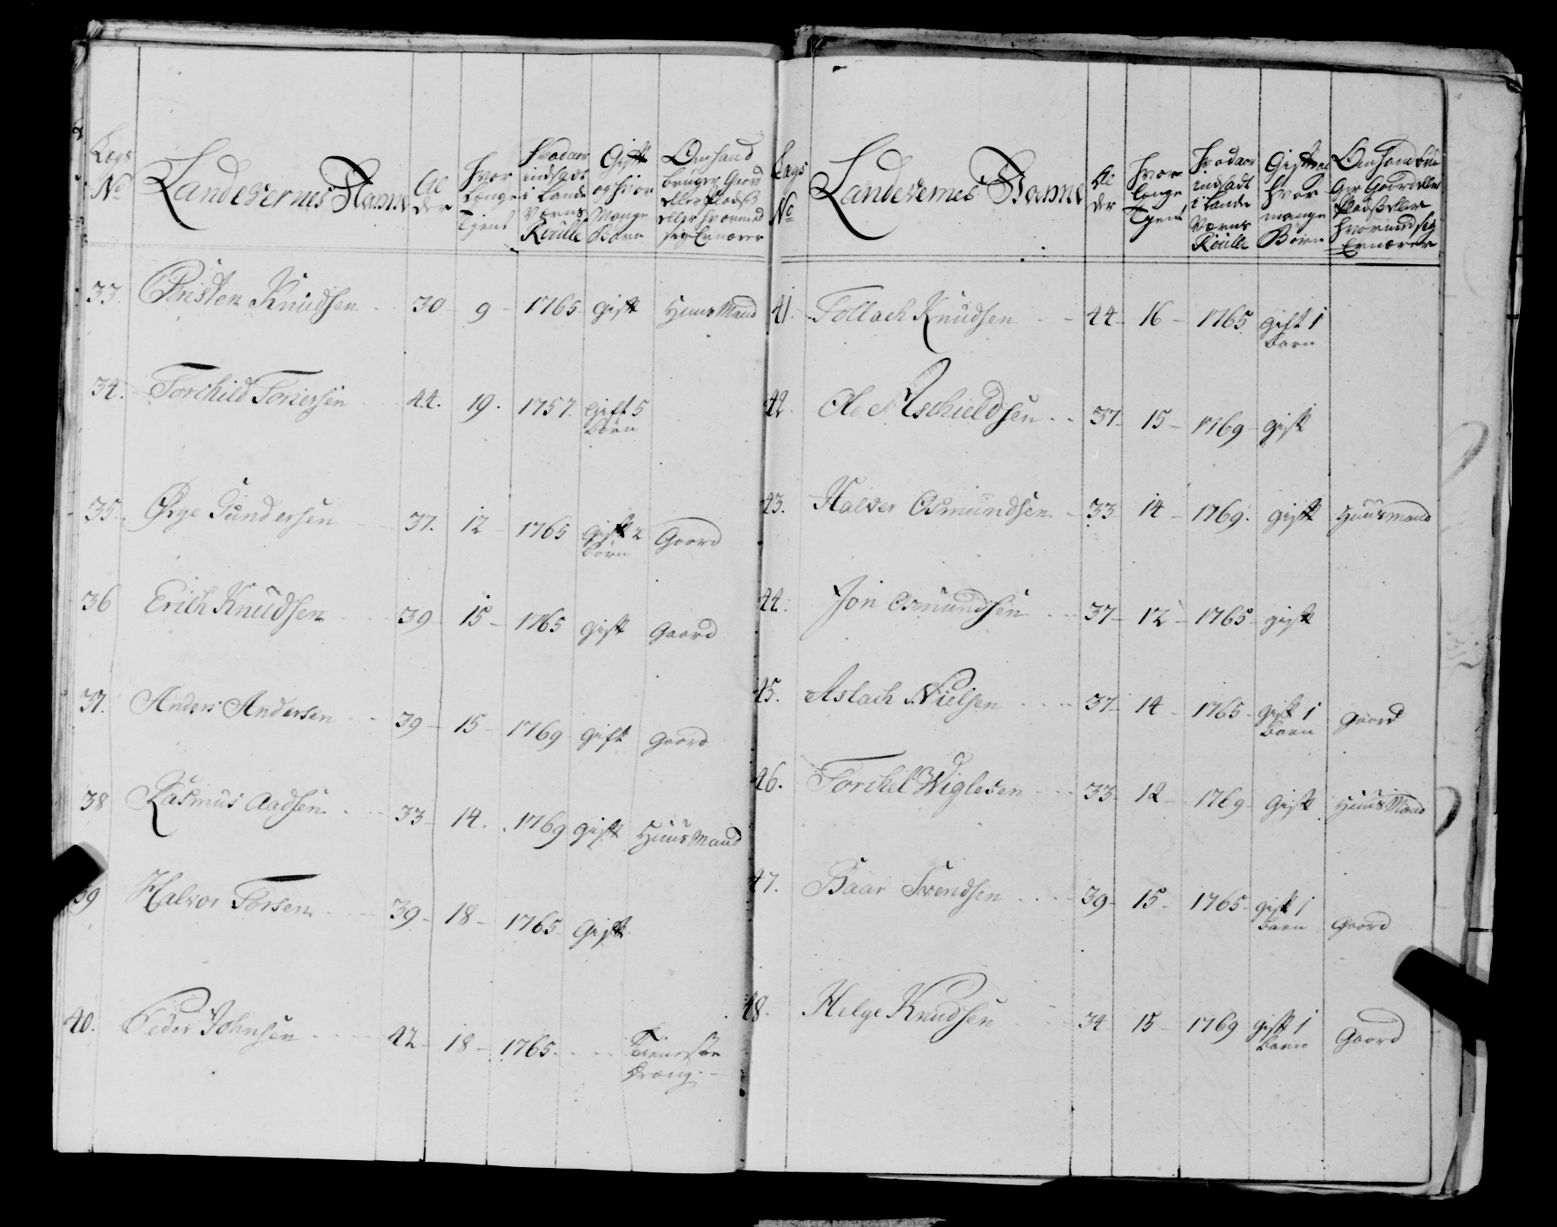 Lægs No Landeværnes Nafne Alder Hvor Længe Tjent Hvad aar indsadt i Lande Værns Roulle Gift og hvor Mange Børn Om hand bruger Gaard eller Pladss eller hvormed sig Ernærer
33. Christen Knudsen 30 9 1765 gift Huus Mand
34. Torchild Toriersen 44. 19. 1757 gift 5 Børn
35. Øyе Gundersen 37. 12 1765 gift 2 Børn Gaard
36 Erich Knudsen 39 15 1765 gift Gaard
37. Anders Andersen 39 15 1769 gift gaard
38 Rasmus Aadsen 33 14. 1769 gift Huus Mand
39 Halvor Torsen 39 18 1765 Gift
40. Peder Johnsen 42 18 1765 Tieneste dræng
Lægs No Landevernes Nafne Alder Hvor længe Tjent Hvad aar indsadt i Lande Værns Roulle Gift og hvor mange Børn Om hand bruger Gaard eller Pladss eller hvormed sig Ernærer
41. Tollach Knudsen 44 16 1765 gift 1 Barn
42. Ole Aschieldsen 37 15 1769 gift
43. Halvor Osmundsen 33 14 1769. gift Huusmand
44. Jon Osmundsen 37 12 1765 gift
45. Aslach Nielsen 37 14 1765 gift 1 Barn gaard
46. Torchel Wiglesen 33 12 1769 Gift Huus Mand
47. Baar Svendsen 39 15 1765 gift 1 Barn gaard
48. Helge Knudsen 34 15 1769 gift 1 Barn Gaard